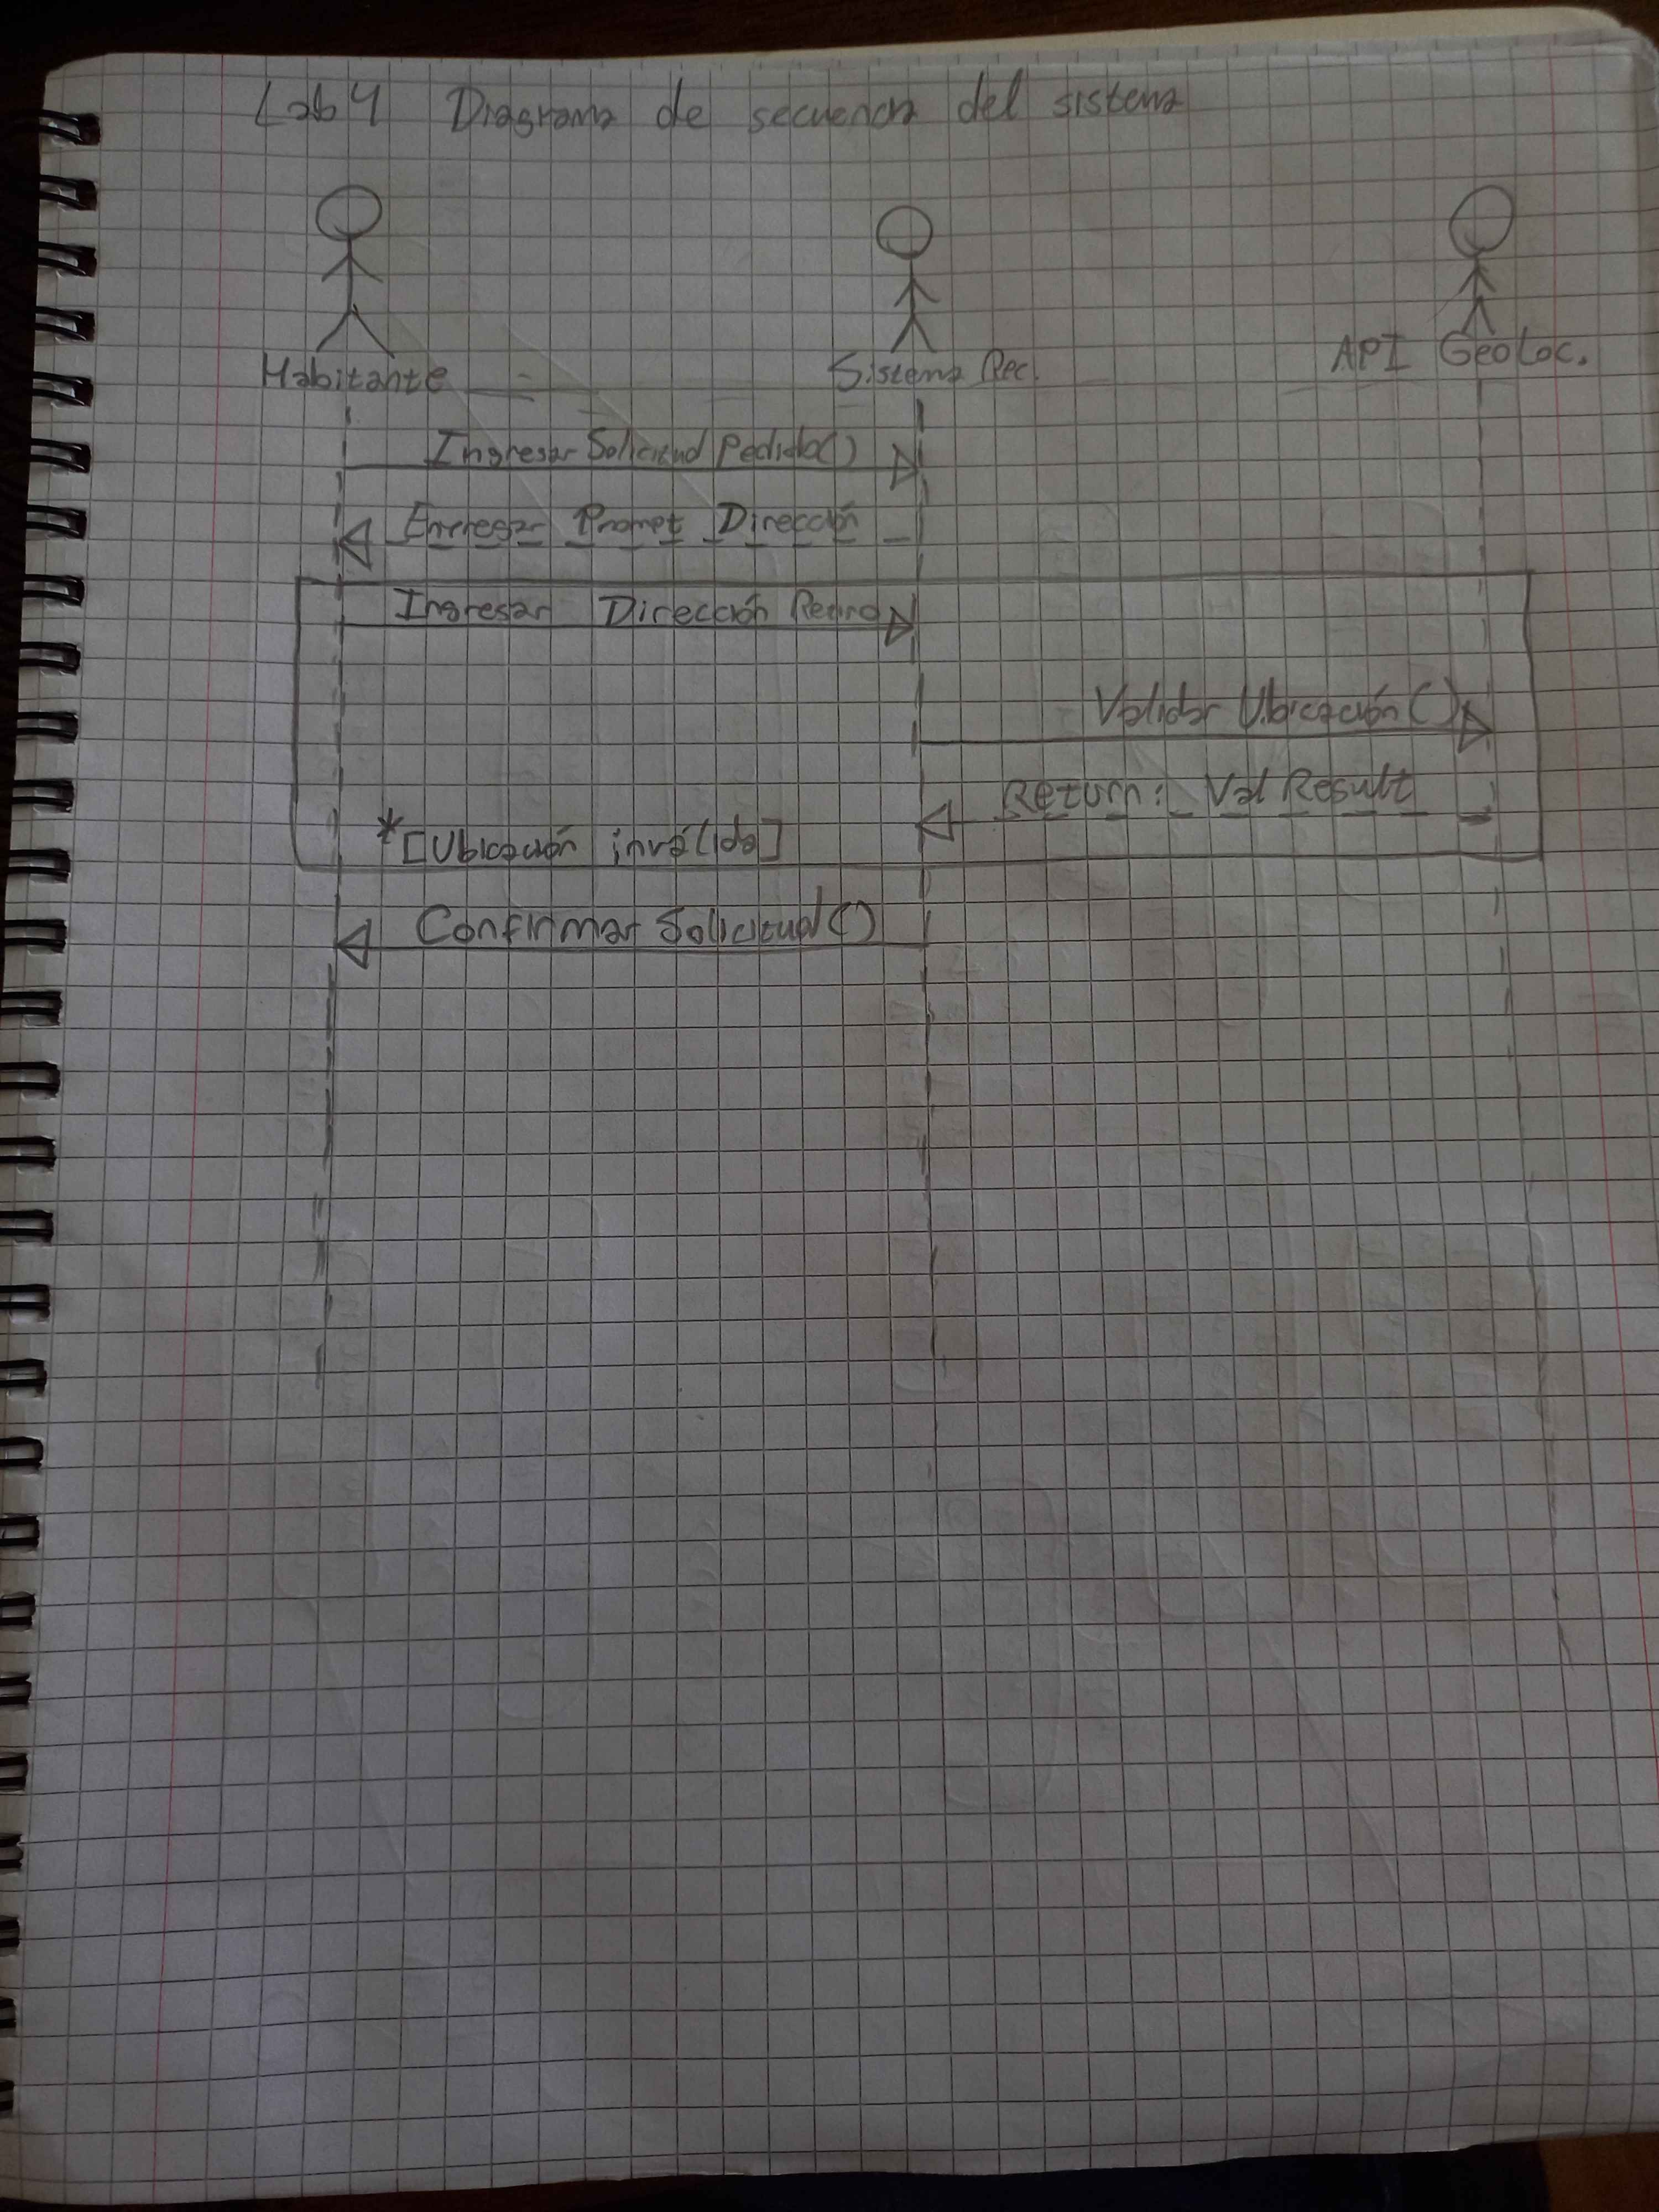 Lab 4 Diagrama de secuencia del sistema
Habitante Sistema Rec. API GeoLoc.
Ingresar Solicitud Pedido()
Prompt Dirección
Ingresar Dirección
Validar Ubicación()
Return: Val Result
*[Ubicación inválida]
Confirmar Solicitud()